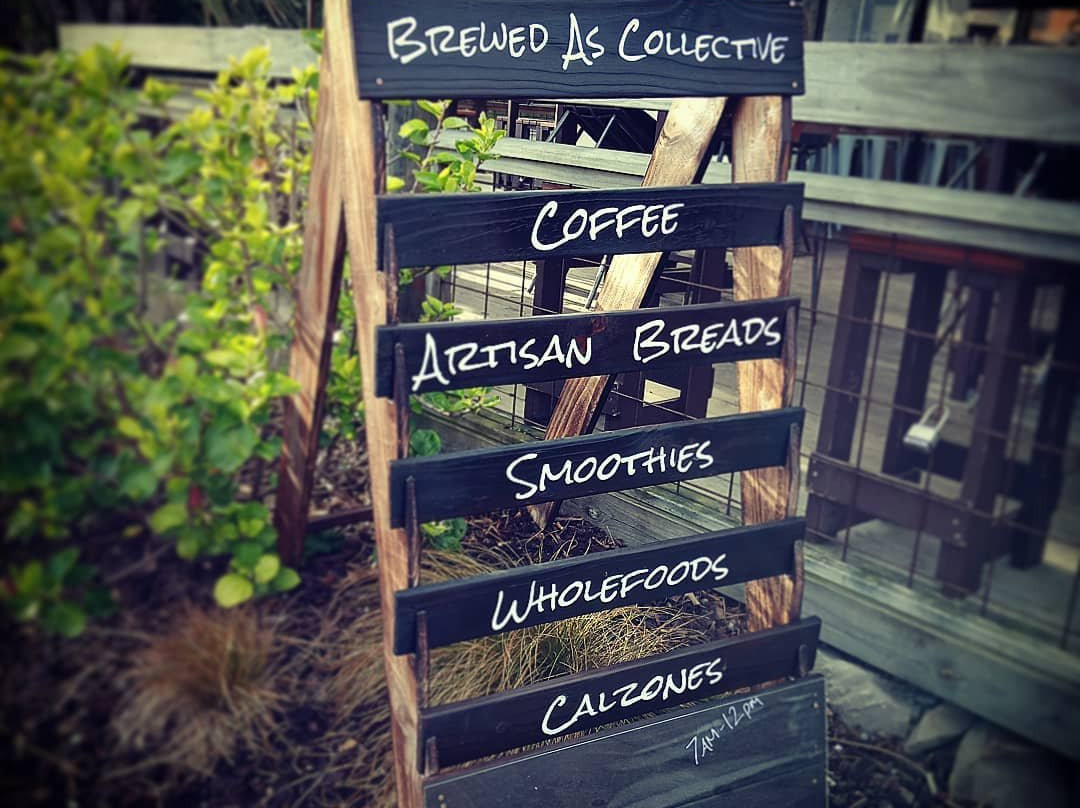 Brewed As Collective
Coffee
Artisan Breads
Smoothies
Wholefoods
Calzones
7AM-12PM